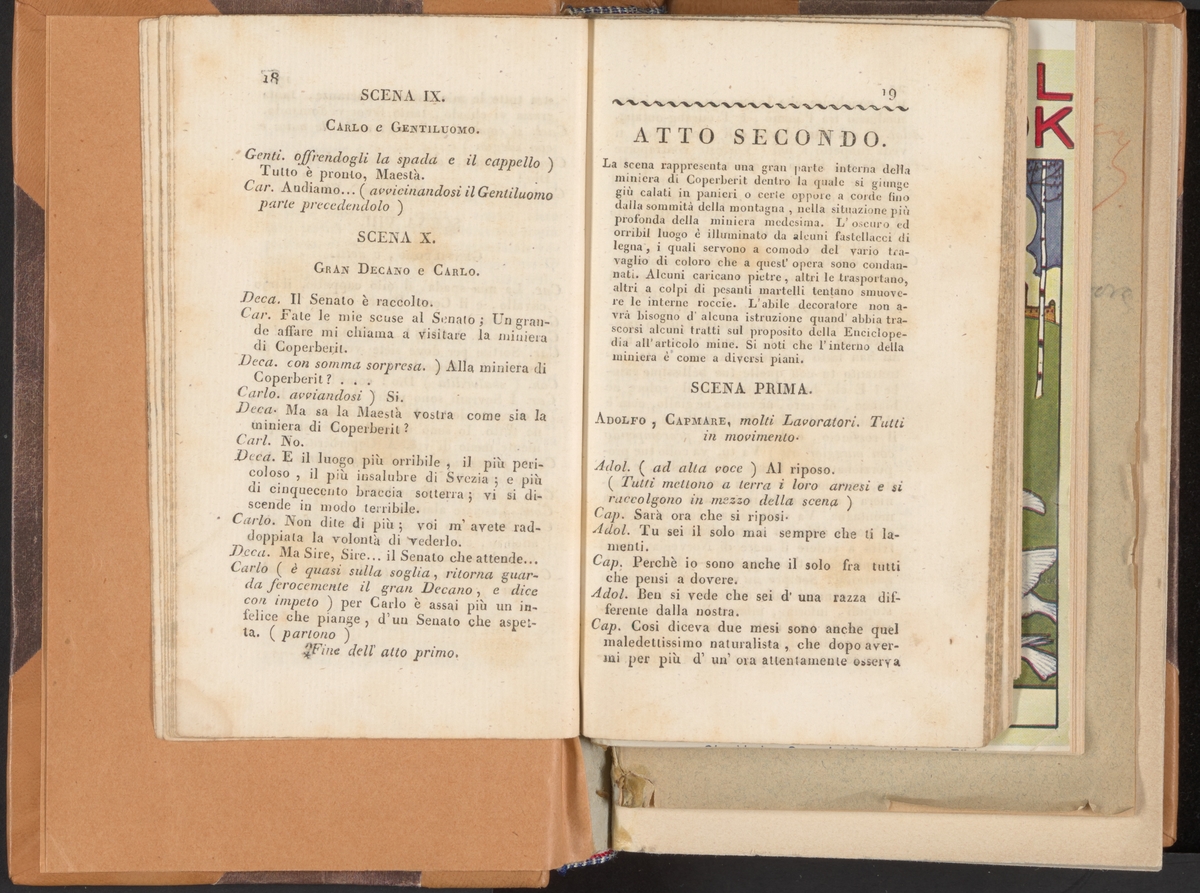 18
SCENA IX.
CARLO e GENTILUOMO.
Genti. offrendogli la spada e il cappello )
Tutto è pronto, Maestà.
Car. Andiamo... ( avvicinandosi il Gentiluomo
parte precedendolo )
SCENA X.
GRAN DECANO e CARLO.
Deca. Il Senato è raccolto.
Car. Fate le mie scuse al Senato ; Un gran-
de affare mi chiama a visitare la miniera
di Coperberit.
Deca. con somma sorpresa. ) Alla miniera di
Coperberit ? . . .
Carlo. avviandosi ) Si.
Deca. Ma sa la Maestà vostra come sia la
miniera di Coperberit ?
Carl. No.
Deca. E il luogo più orribile , il più peri-
coloso , il più insalubre di Svezia ; e più
di cinquecento braccia sotterra ; vi si di-
scende in modo terribile.
Carlo. Non dite di più ; voi m' avete rad-
doppiata la volontà di vederlo.
Deca. Ma Sire, Sire... il Senato che attende...
Carlo ( è quasi sulla soglia , ritorna guar-
da ferocemente il gran Decano , e dice
con impeto ) per Carlo è assai più un in-
felice che piange , d'un Senato che aspet-
ta. ( partono )
Fine dell' atto primo.
19
ATTO SECONDO.
La scena rappresenta una gran parte interna della
miniera di Coperberit dentro la quale si giunge
giù calati in panieri o certe oppure a corde fino
dalla sommità della montagna , nella situazione più
profonda della miniera medesima. L' oscuro ed
orribil luogo è illuminato da alcuni fastellacci di
legna , i quali servono a comodo del vario tra-
vaglio di coloro che a quest' opera sono condan-
nati. Alcuni caricano pietre , altri le trasportano,
altri a colpi di pesanti martelli tentano smuove-
re le interne roccie. L'abile decoratore non a-
vrà bisogno d' alcuna istruzione quand' abbia tra-
scorsi alcuni tratti sul proposito della Enciclope-
dia all'articolo mine. Si noti che l'interno della
miniera è come a diversi piani.
SCENA PRIMA.
ADOLFO , CAPMARE, molti Lavoratori. Tutti
in movimento.
Adol. ( ad alta voce ) Al riposo.
( Tutti mettono a terra i loro arnesi e si
raccolgono in mezzo della scena )
Cap. Sarà ora che si riposi.
Adol. Tu sei il solo mai sempre che ti la-
menti.
Cap. Perchè io sono anche il solo fra tutti
che pensi a dovere.
Adol. Ben si vede che sei d' una razza dif-
ferente dalla nostra.
Cap. Cosi diceva due mesi sono anche quel
maledettissimo naturalista , che dopo aver-
mi per più d' un' ora attentamente osserva
L
OK